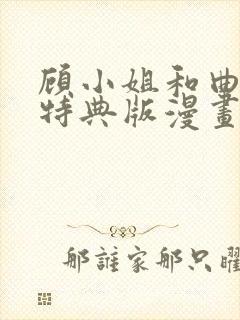 顾小姐和曲
特典版漫畫
那誰家那只